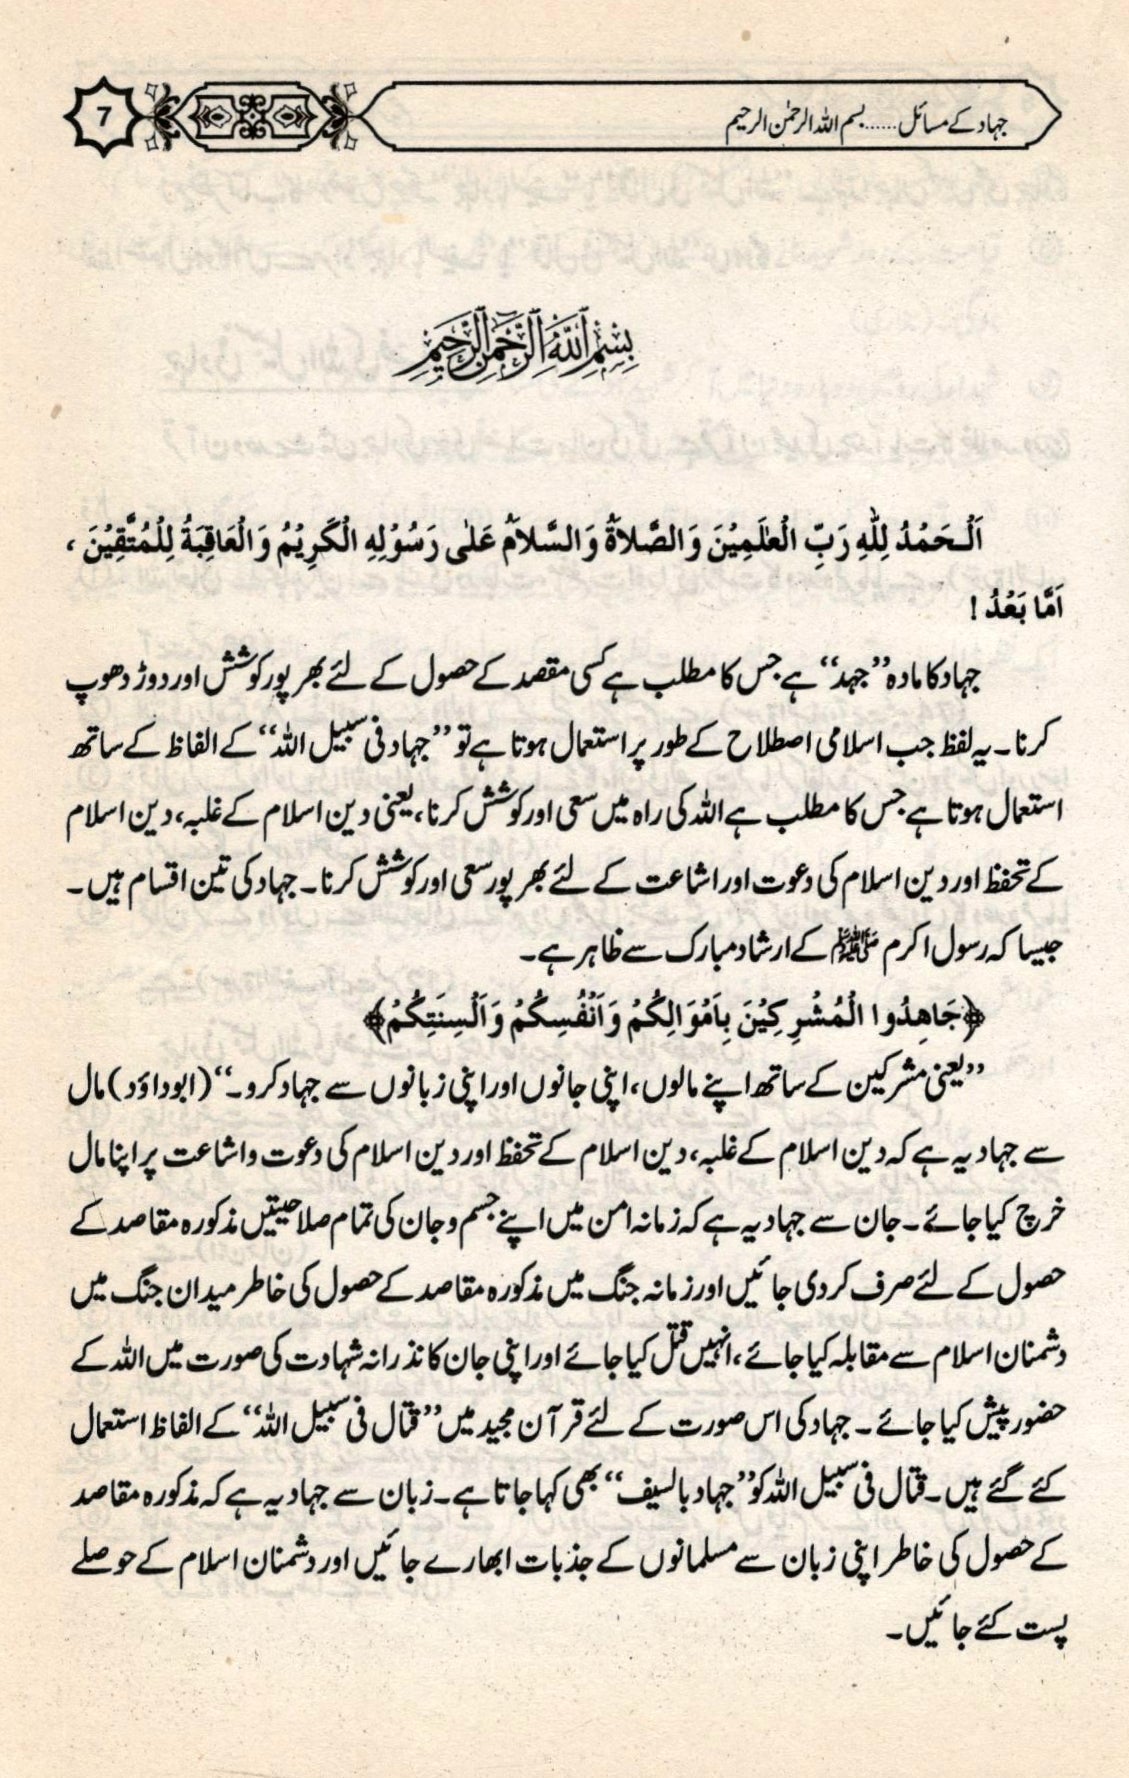 جہاد کے مسائل......بسم اللہ الرحمٰن الرحیم
7
بِسْمِ اللّٰهِ الرَّحْمٰنِ الرَّحِيْمِ
اَلْحَمْدُ لِلّٰهِ رَبِّ الْعٰلَمِيْنَ وَالصَّلاَةُ وَالسَّلاَمُ عَلٰى رَسُوْلِهِ الْكَرِيْمُ وَالْعَاقِبَةُ لِلْمُتَّقِيْنَ ،
اَمَّا بَعْدُ !
جہاد کا مادہ ’’جہد‘‘ ہے جس کا مطلب ہے کسی مقصد کے حصول کے لئے بھر پور کوشش اور دوڑ دھوپ
کرنا۔ یہ لفظ جب اسلامی اصطلاح کے طور پر استعمال ہوتا ہے تو ’’جہاد فی سبیل اللہ‘‘ کے الفاظ کے ساتھ
استعمال ہوتا ہے جس کا مطلب ہے اللہ کی راہ میں سعی اور کوشش کرنا، یعنی دین اسلام کے غلبہ، دین اسلام
کے تحفظ اور دین اسلام کی دعوت اور اشاعت کے لئے بھر پور سعی اور کوشش کرنا۔ جہاد کی تین اقسام ہیں۔
جیسا کہ رسول اکرم ﷺ کے ارشاد مبارک سے ظاہر ہے۔
﴿جَاهِدُوا الْمُشْرِكِيْنَ بِاَمْوَالِكُمْ وَاَنْفُسِكُمْ وَاَلْسِنَتِكُمْ﴾
’’یعنی مشرکین کے ساتھ اپنے مالوں، اپنی جانوں اور اپنی زبانوں سے جہاد کرو۔‘‘ (ابوداؤد) مال
سے جہاد یہ ہے کہ دین اسلام کے غلبہ، دین اسلام کے تحفظ اور دین اسلام کی دعوت و اشاعت پر اپنا مال
خرچ کیا جائے۔ جان سے جہاد یہ ہے کہ زمانہ امن میں اپنے جسم و جان کی تمام صلاحیتیں مذکورہ مقاصد کے
حصول کے لئے صرف کر دی جائیں اور زمانہ جنگ میں مذکورہ مقاصد کے حصول کی خاطر میدان جنگ میں
دشمنان اسلام سے مقابلہ کیا جائے، انہیں قتل کیا جائے اور اپنی جان کا نذرانہ شہادت کی صورت میں اللہ کے
حضور پیش کیا جائے۔ جہاد کی اس صورت کے لئے قرآن مجید میں ’’قتال فی سبیل اللہ‘‘ کے الفاظ استعمال
کئے گئے ہیں۔ قتال فی سبیل اللہ کو ’’جہاد بالسیف‘‘ بھی کہا جاتا ہے۔ زبان سے جہاد یہ ہے کہ مذکورہ مقاصد
کے حصول کی خاطر اپنی زبان سے مسلمانوں کے جذبات ابھارے جائیں اور دشمنان اسلام کے حوصلے
پست کئے جائیں۔